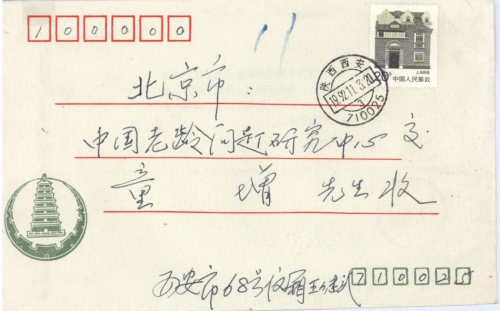 100000
11
上海民居
20分
中国人民邮政
陕西西安
1992.11.3.20
3
710025
北京市:
中国老龄问题研究中心交
童 增 先生收
西安市68号信箱
710025